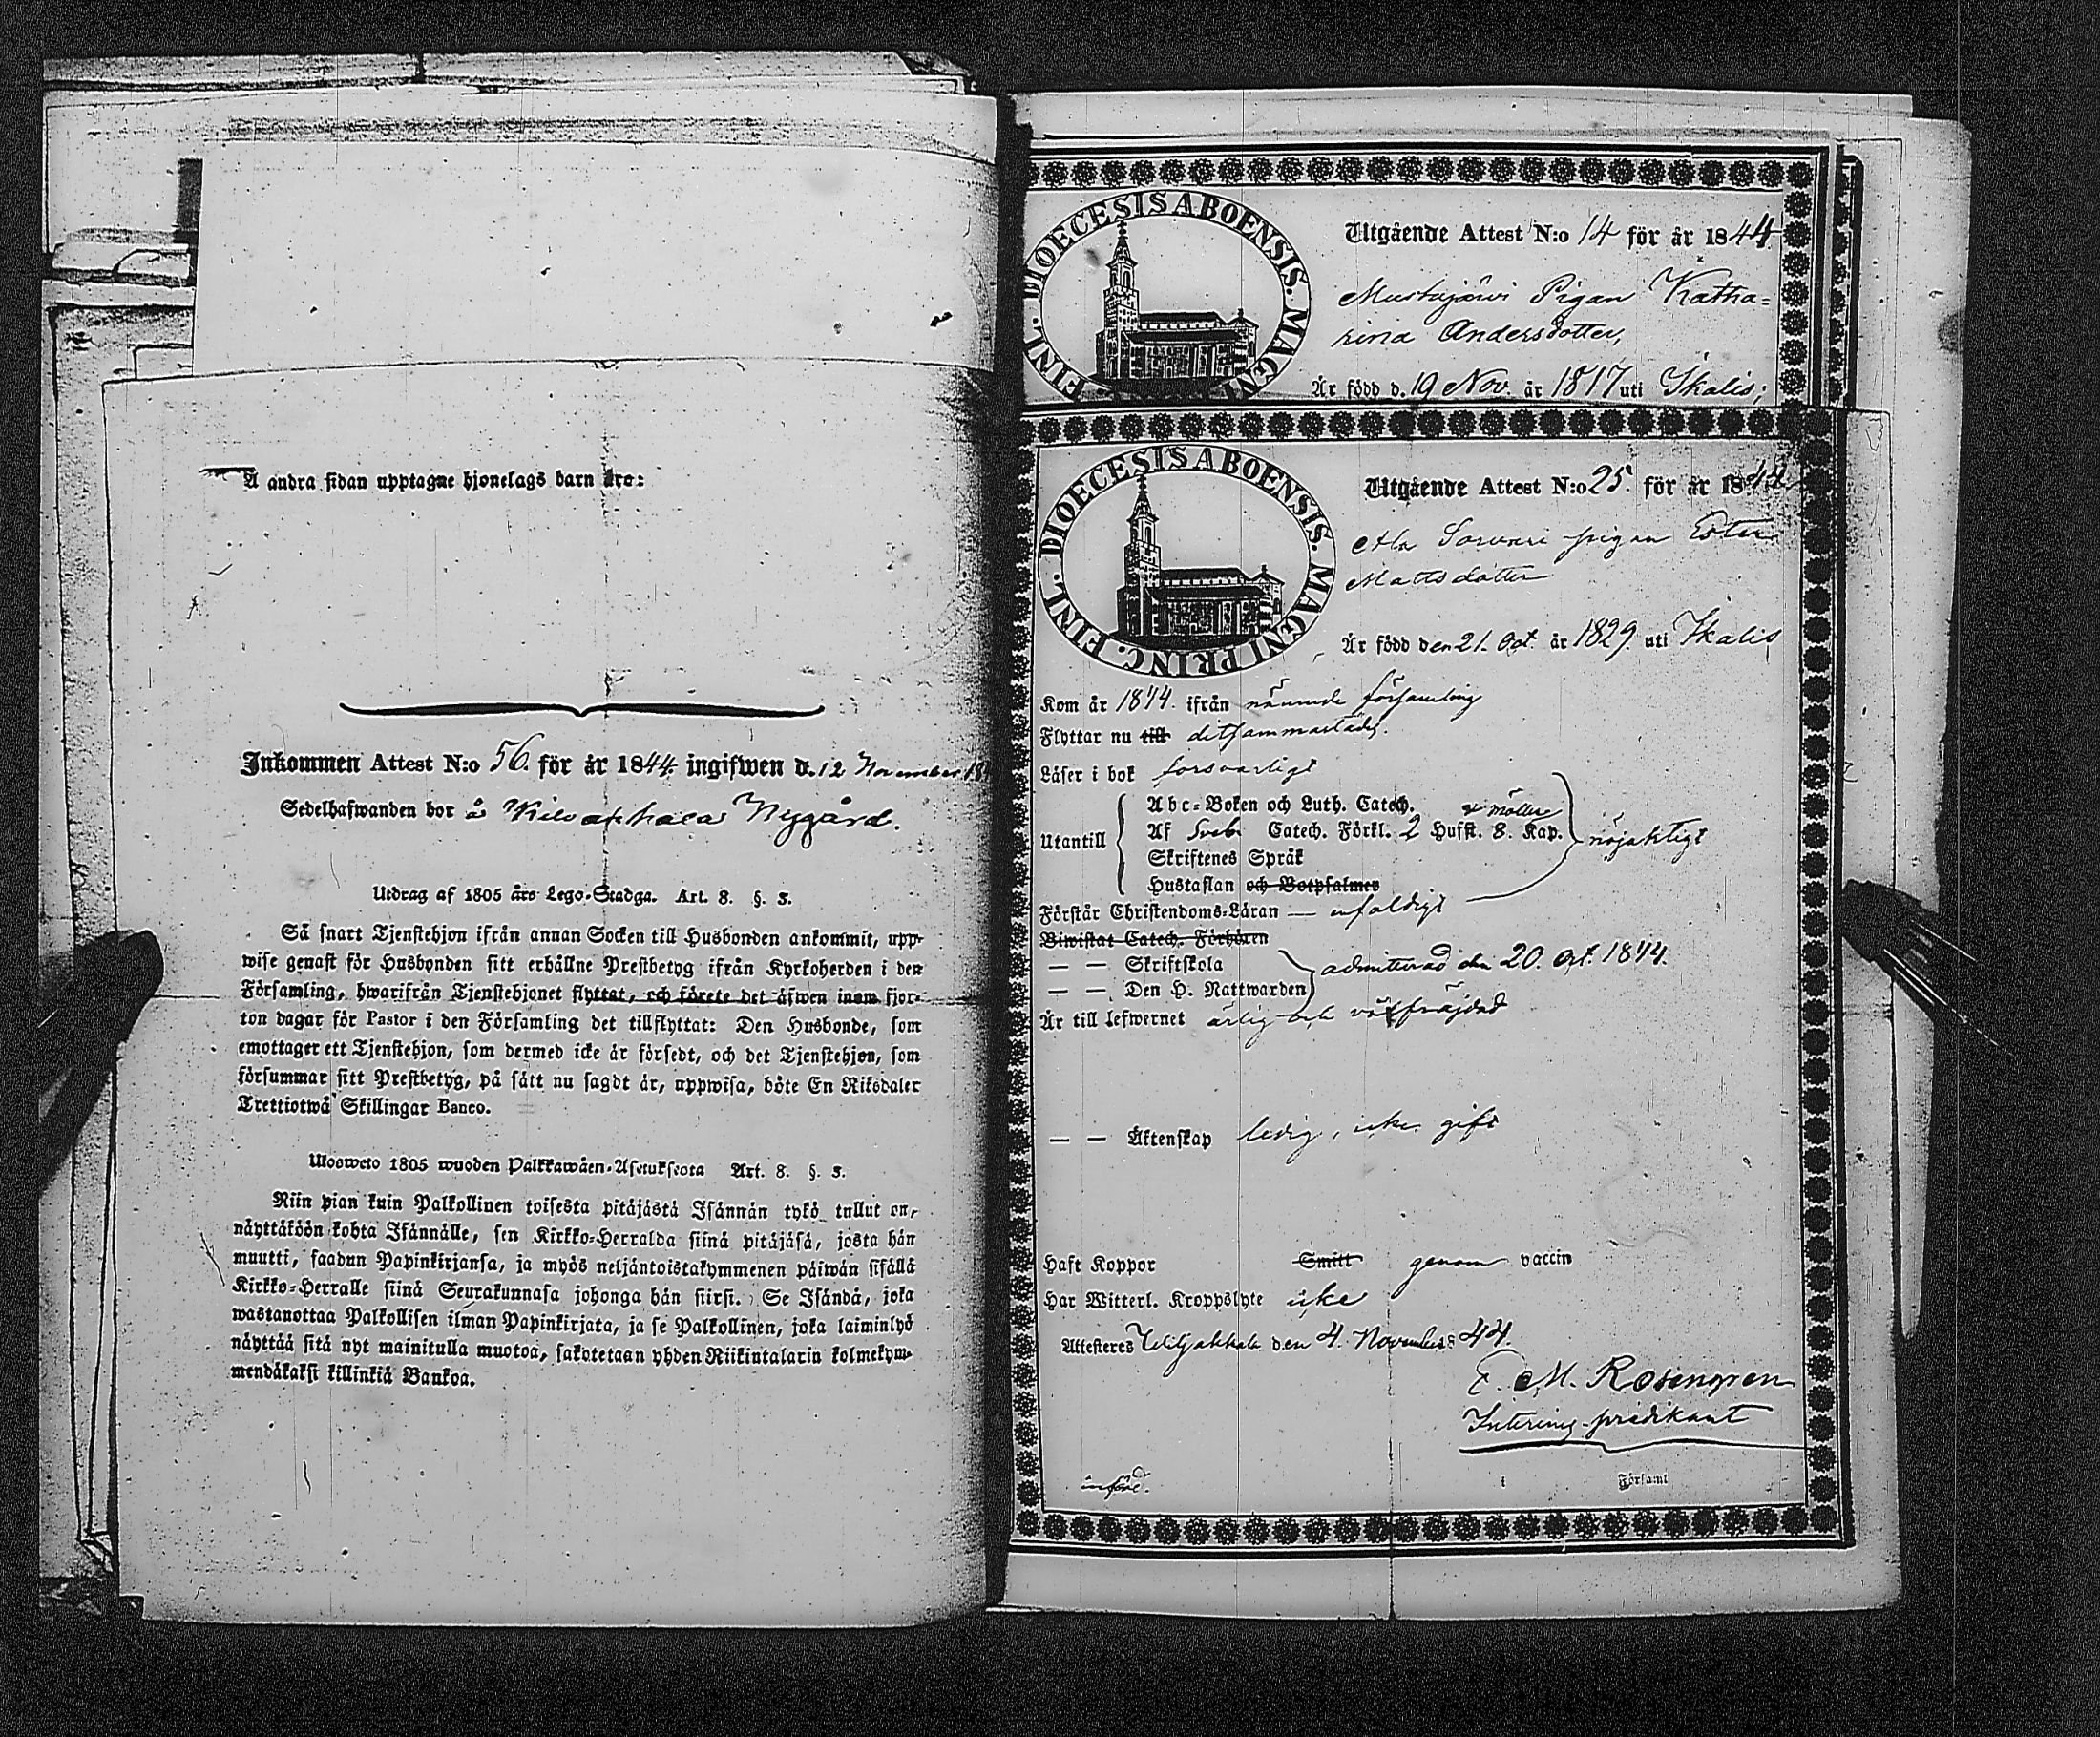 Å andra sidan upptagne hjonelags barn äro:
Inkommen Attest N:o 56. för år 1844. ingifwen d. 12 November 18
Sedelhafwanden bor å Kilvakkala Nygård.
Utdrag af 1805 års Lego-Stadga. Art. 8. §. 3.
Så snart Tjenstehjon ifrån annan Socken till Husbonden ankommit, upp-
wise genast för Husbonden sitt erhållne Prestbetyg ifrån Kyrkoherden i den
Församling, hwarifrån Tjenstehjonet flyttat, och förete det äfwen inom fjor-
ton dagar för Pastor i den Församling det tillflyttat: Den Husbonde, som
emottager ett Tjenstehjon, som dermed icke är försedt, och det Tjenstehjon, som
försummar sitt Prestbetyg, på sätt nu sagdt är, uppwisa, böte En Riksdaler
Trettiotwå Skillingar Banco.
Uloswеto 1805 wuoden Palkkawäen-Asetuksesta Art. 8. §. 3.
Niin pian kuin Palkollinen toisesta pitäjästä Isännän tykö tullut on,
näyttäköön kohta Isännälle, sen Kirkko-Herralda siinä pitäjäsä, josta hän
muutti, saadun Papinkirjansa, ja myös neljäntoistakymmenen päiwän sisällä
Kirkko-Herralle siinä Seurakunnasa johonga hän siirsi. Se Isändä, joka
wastanottaa Palkollisen ilman Papinkirjata, ja se Palkollinen, joka laiminlyö
näyttää sitä nyt mainitulla muotoa, sakotetaan yhden Riikintalarin kolmekym-
mendäkaksi killinkiä Bankoa.
DIOECESIS ABOENSIS. MAGNI FINL.
Utgående Attest N:o 14 för år 1844
Mustajärvi Pigan Katha-
rina Andersdotter,
Är född d. 19 Nov. år 1817 uti Ikalis;
DIOECESIS ABOENSIS. MAGNI PRINC. FINL.
Utgående Attest N:o 25. för år 1844
Ala Sorvari pigan Ester
Mattsdotter
Är född den 21. Oct. år 1829. uti Ikalis
Kom år 1844. ifrån nämnde församling
Flyttar nu till ditsammastädes.
Läser i bok försvarligt
Utantill
Abc-Boken och Luth. Catech.
Af Sveb. Catech. Förkl. 2 Hufst. 8. Kap.
Skriftenes Språk
Hustaflan och Botpsalmer
nöjaktigt
Förstår Christendoms-Läran — enfaldigt
Biwistat Catech. Förhören
— — Skriftskola
— — Den H. Nattwarden
admitterad den 20. Oct. 1844.
Är till lefwernet ärlig och välfräjdad
— — Äktenskap ledig, icke gift
Haft Koppor Smitt genom vaccin
Har Witterl. Kroppslyte icke
Attesteres Wiljakkala den 4. November 44.
E. M. Rosengren
Interims-predikant
införd.
i Förſaml